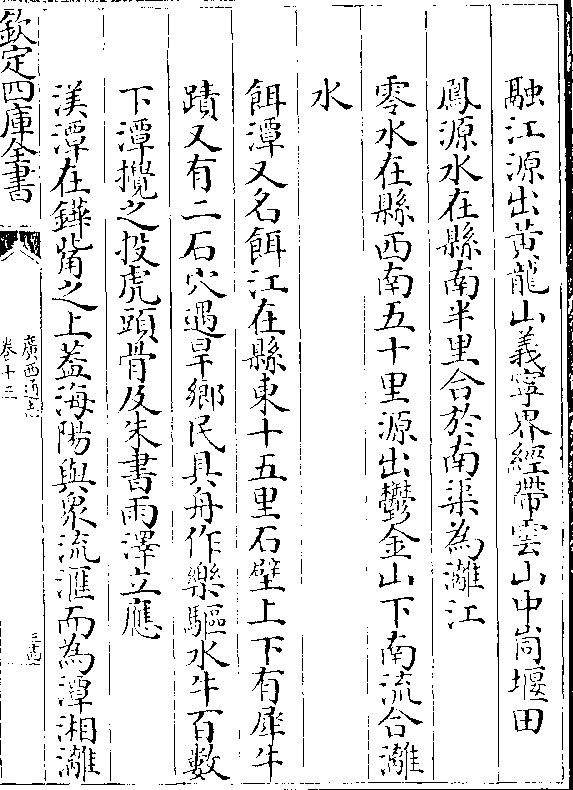 融江源出黃龍山義寧界經帶雲山中峝堰田
鳳源水在縣南半里合於南渠為灕江
零水在縣西南五十里源出鬱金山下南流合灕
水
餌潭又名餌江在縣東十五里石壁上下有犀牛
蹟又有二石穴遇旱鄉民具舟作樂驅水牛百數
下潭攪之投虎頭骨及朱書雨澤立應
渼潭在鏵觜之上葢海陽與衆流滙而為潭湘灕
欽定四庫全書
廣西通志
卷十三